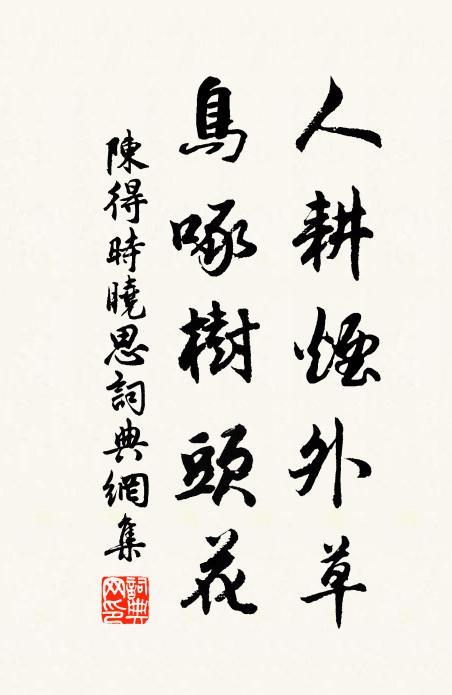 人耕煙外草
鳥啄樹頭花
陳得時曉思詞典網集
詞典网印